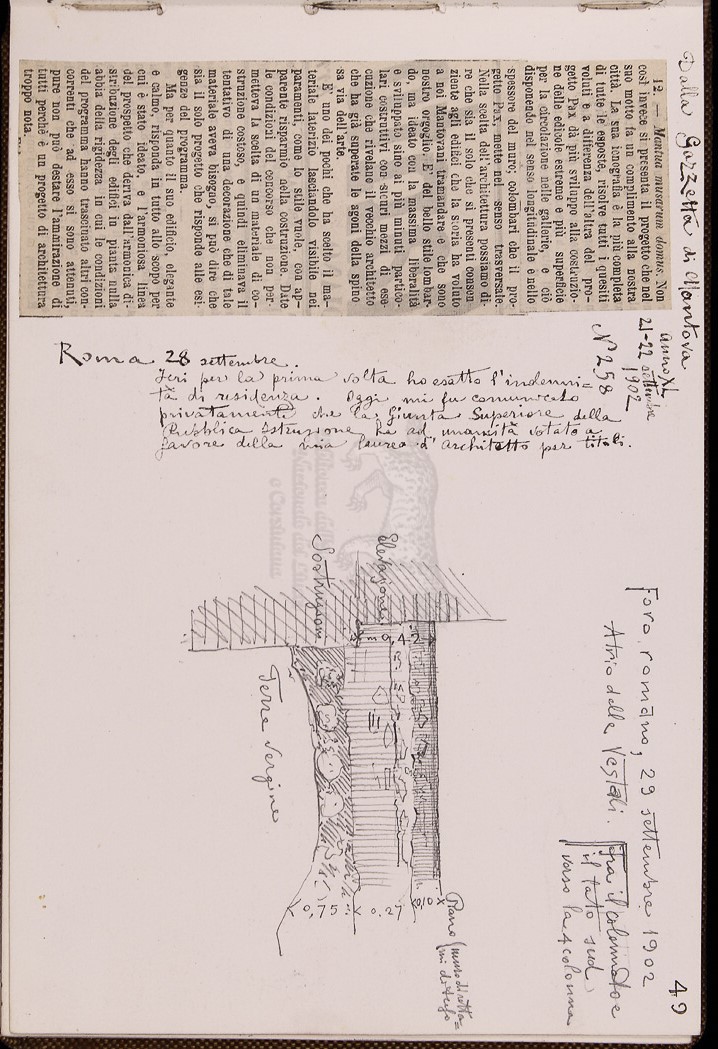 49
Dalla Gazzetta di Mantova
anno XL
21-22 settembre
1902
N° 258
12. — Mantua musarum domus. Non
così invece si presenta il progetto che nel
suo motto fa un complimento alla nostra
città. La sua icnografia è la più completa
di tutte le esposte, risolve tutti i quesiti
voluti e a differenza dell'altra del pro-
getto Pax dà più sviluppo alla costruzio-
ne delle edicole estreme e più superficie
per la circolazione nelle gallerie, e ciò
disponendo nel senso longitudinale e nello
spessore del muro; colombari che il pro-
getto Pax mette nel senso trasversale.
Nella scelta dell'architettura possiamo di-
re che sia il solo che si presenti consen
ziente agli edifici che la storia ha voluto
a noi Mantovani tramandare e che sono
nostro orgoglio. E' del bello stile lombar-
do, ma ideato con la massima liberalità
e sviluppato sino ai più minuti partico-
lari costruttivi con sicuri mezzi di ese-
cuzione che rivelano il vecchio architetto
che ha già superate le agoni della spino
sa via dell'arte.
E' uno dei pochi che ha scelto il ma-
teriale laterizio lasciandolo visibile nei
paramenti, come lo stile vuole, con ap-
parente risparmio nella costruzione. Date
le condizioni del concorso che non per-
metteva la scelta di un materiale di co-
struzione costoso, e quindi eliminava il
tentativo di una decorazione che di tale
materiale aveva bisogno, si può dire che
sia il solo progetto che risponde alle esi-
genze del programma.
Ma per quanto il suo edificio, elegante
e calmo, risponda in tutto allo scopo per
cui è stato ideato, e l'armoniosa linea
del prospetto che deriva dall'armonica di-
stribuzione degli edifici in pianta nulla
abbia della rigidezza in cui le condizioni
del programma hanno trascinato altri con-
correnti che ad esso si sono attenuti,
pure non può destare l'ammirazione di
tutti perchè è un progetto di architettura
troppo nota.
Roma 28 settembre.
Ieri per la prima volta ho esatto l'indenni-
tà di residenza. Oggi mi fu comunicato
privatamente che la Giunta Superiore della
Pubblica Istruzione ha ad unanimità votato a
favore della mia laurea d'Architetto per titoli.
Foro romano, 29 settembre 1902
Atrio delle Vestali. Fra il colonnato e
il lato sud
verso la 4 colonna
Elevazione
Sostruzioni
m 0,42
Terra vergine
0,75 0.27 0,10
Piano
muro di rotta-
mi di tufo